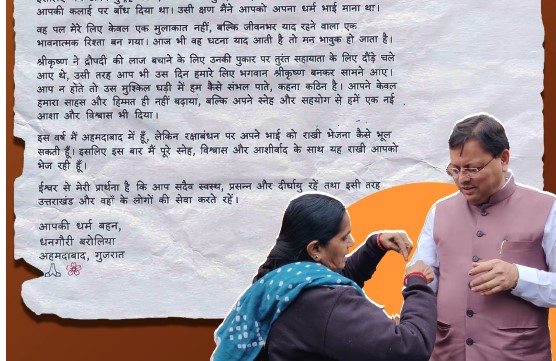 आपकी कलाई पर बाँध दिया था। उसी क्षण मैंने आपको अपना धर्म भाई माना था।
वह पल मेरे लिए केवल एक मुलाकात नहीं, बल्कि जीवनभर याद रहने वाला एक
भावनात्मक रिश्ता बन गया। आज भी वह घटना याद आती है तो मन भावुक हो जाता है।
श्रीकृष्ण ने द्रौपदी की लाज बचाने के लिए उनकी पुकार पर तुरंत सहायता के लिए दौड़े चले
आए थे, उसी तरह आप भी उस दिन हमारे लिए भगवान श्रीकृष्ण बनकर सामने आए।
आप न होते तो उस मुश्किल घड़ी में हम कैसे संभल पाते, कहना कठिन है। आपने केवल
हमारा साहस और हिम्मत ही नहीं बढ़ाया, बल्कि अपने स्नेह और सहयोग से हमें एक नई
आशा और विश्वास भी दिया।
इस वर्ष मैं अहमदाबाद में हूँ, लेकिन रक्षाबंधन पर अपने भाई को राखी भेजना कैसे भूल
सकती हूँ। इसलिए इस बार मैं पूरे स्नेह, विश्वास और आशीर्वाद के साथ यह राखी आपको
भेज रही हूँ।
ईश्वर से मेरी प्रार्थना है कि आप सदैव स्वस्थ, प्रसन्न और दीर्घायु रहें तथा इसी तरह
उत्तराखंड और वहाँ के लोगों की सेवा करते रहें।
आपकी धर्म बहन,
धनगौरी बरोलिया
अहमदाबाद, गुजरात